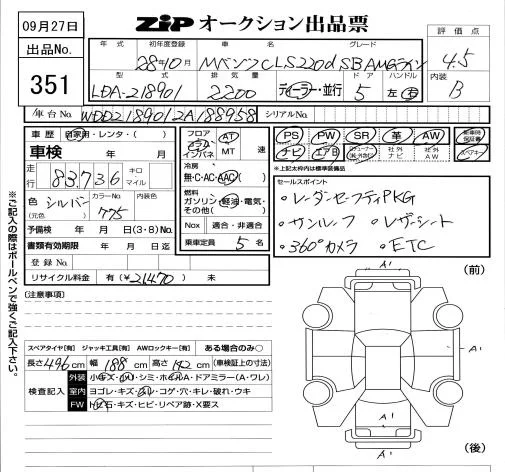 09月27日
ZiP オークション出品票
出品No.
351
年式 初年度登録 車名 グレード
28年10月 MベンツCLS220d SB AMGライン
型式 排気量 ドア ハンドル
LDA-218901 2200 ディーラー・並行 5 左 右
評価点
4.5
内装
B
車台No. WDD2189012A188958 シリアルNo.
車歴 自家用・レンタ・( )
車検 年 月
走行 83,736 キロ マイル
色 シルバー カラーNo. 775 内装色
(元色 )
予備検 年 月 日(3・8)No.
書類有効期限 年 月 日迄
登録No.
リサイクル料金 有(¥21470) 未
フロア コラム インパネ AT MT 速
冷房 無・C・AC・AAC( )
燃料 ガソリン・軽油・電気・その他( )
Nox 適合・非適合
乗車定員 5 名
PS PW SR 革 AW 新車時保証書
ナビ エアB 社外ナビ 社外AW スペアキー
※上記太枠内は標準装備品
セールスポイント
・レーダーセーフティPKG
・サンルーフ ・レザーシート
・360°カメラ ・ETC
(注意事項)
※ご記入の際はボールペンで強くご記入下さい。
スペアタイヤ[有] ジャッキ工具[有] AWロックキー[有] ある場合のみ○
長さ 496 cm 幅 188 cm 高さ 142 cm (車検証上の寸法)
検査記入
外装 小キズ・小凹・シミ・ホイルA・ドアミラー(A・ワレ)
室内 ヨゴレ・キズ・スレ・コゲ・穴・キレ・破れ・ウキ
FW トビ石・キズ・ヒビ・リペア跡・X要ス
(前)
A'
A'
A'
A'
(後)